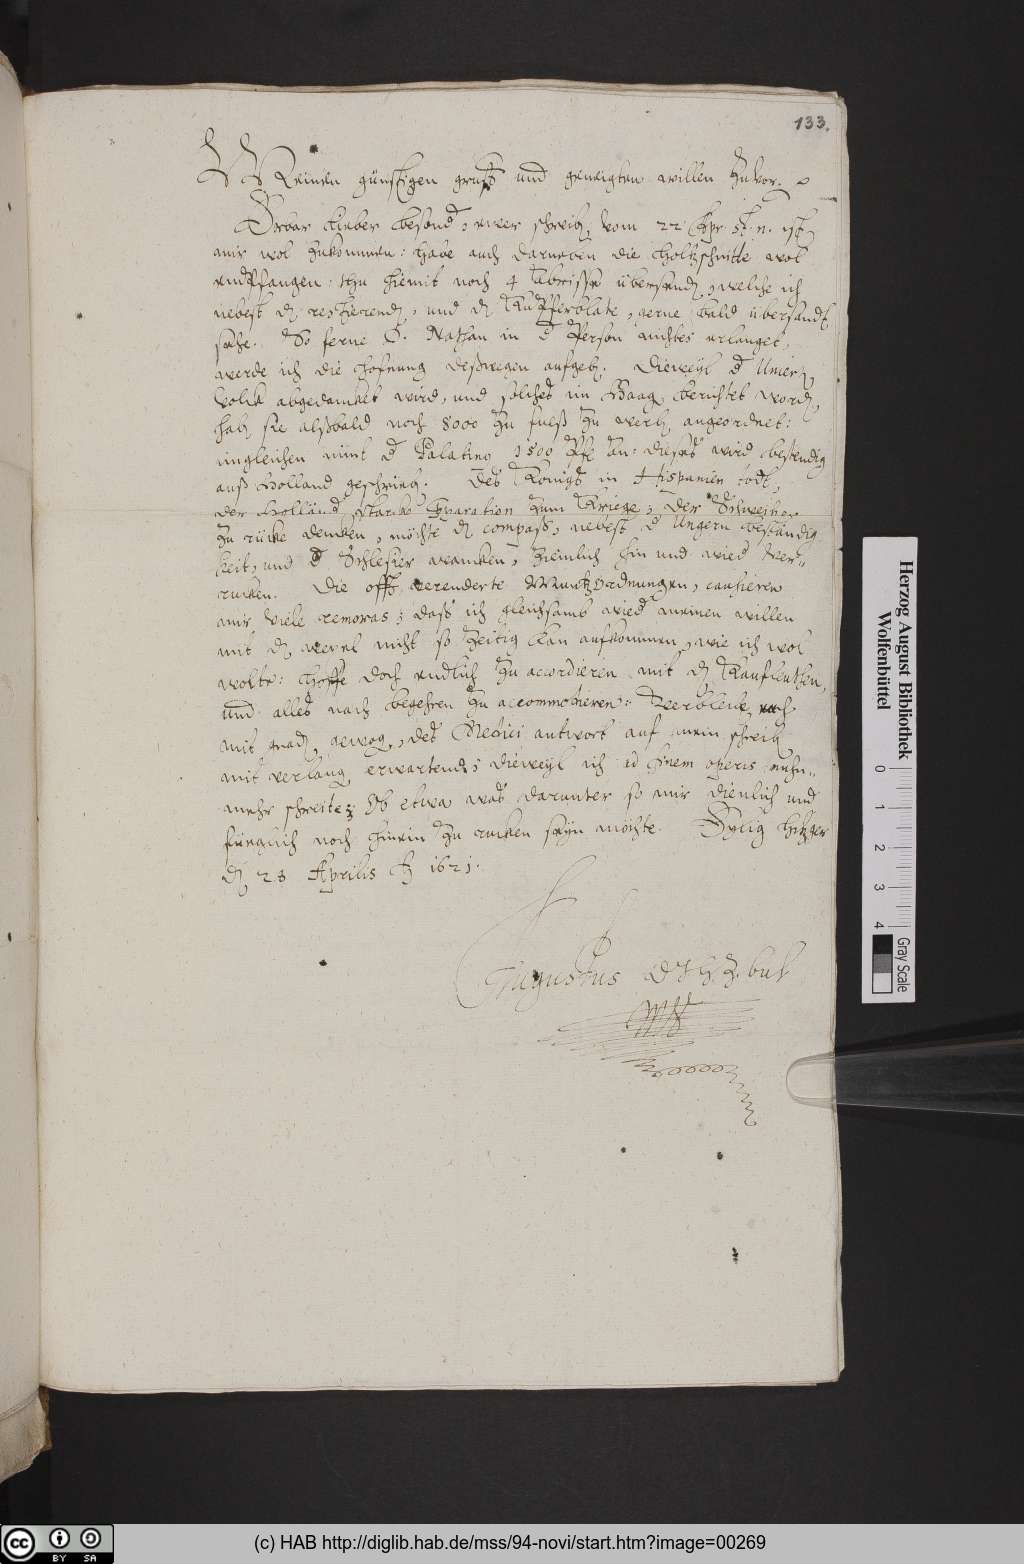 133.
Meinen günstigen gruß und geneigten willen zuvor.
Erbar lieber besond, ewer schreib, vom 22 Apr. st. n. ist
mir wol zukommen: habe auch darneben die Holtzschnitte wol
empfangen: thu hiemit noch 4 Abrisse übersend, welche ich
nebest d restierend, und d Kupfferblate, gerne bald übersandt
sehe. So ferne D. Nathan in d Person nichtes erlanget,
werde ich die Hofnung deßwegen aufgeb. Dieweyl d Unier
Volck abgedancket wird, und solches im Haag berichtet word,
hab sie alßbald noch 8000 zu fueß zu werb angeordnet:
imgleichen nimt d Palatino 1500 Pf an: dieses wird bestendig
auß Holland geschrieb. Des Königs in Hispanien todt,
der Holländ starcke Praparation zum Kriege; Der Schweitzer
zu rücke dencken, möchte d compaß, nebest d Ungern beständig
keit, und d Schlesier wancken, ziemlich hin und wied ver-
rucken. Die offt verenderte Muntzordnungen, causieren
mir viele remoras; daß ich gleichsamb wied meinen willen
mit d werck nicht so zeitig kan aufkommen, wie ich wol
wolte: Hoffe doch endlich zu accordieren mit d Kaufleuthen,
und alles nach begehren zu accommodieren: Verbleib euch
mit gnad gewog, des Medici antwort auf mein schreib
mit verlang erwartend; dieweyl ich ad finem operis nuhn-
mehr schreite; Ob etwa was darunter so mir dienlich und
füeglich noch hinein zu rucken seyn möchte. Eylig Hitzger
d 23 Aprilis A 1621.
Augustus D J H Z. BuL
Mpp
Herzog August Bibliothek
Wolfenbüttel
0 1 2 3 4
Gray Scale
BY SA
(c) HAB http://diglib.hab.de/mss/94-novi/start.htm?image=00269